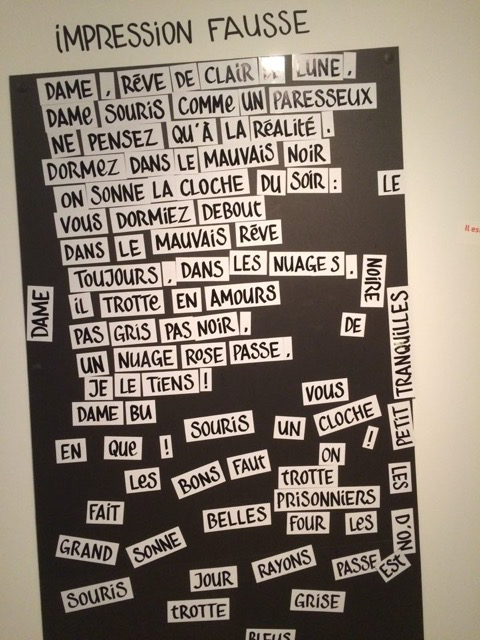 IMPRESSION FAUSSE
DAME, RÊVE DE CLAIR DE LUNE,
DAME SOURIS COMME UN PARESSEUX
NE PENSEZ QU'À LA RÉALITÉ.
DORMEZ DANS LE MAUVAIS NOIR
ON SONNE LA CLOCHE DU SOIR: LE
VOUS DORMIEZ DEBOUT
DANS LE MAUVAIS RÊVE
TOUJOURS, DANS LES NUAGES.
NOIRE
IL TROTTE EN AMOURS
DAME
PAS GRIS PAS NOIR,
DE
UN NUAGE ROSE PASSE,
TRANQUILLES
JE LE TIENS!
VOUS
DAME BU
SOURIS UN CLOCHE
PETIT
EN QUE !
!
ON
LES BONS FAUT
TROTTE
LES
PRISONNIERS
FAIT
BELLES FOUR LES
D'
NO
GRAND SONNE
JOUR RAYONS PASSE EST
SOURIS
TROTTE GRISE
BLEUS